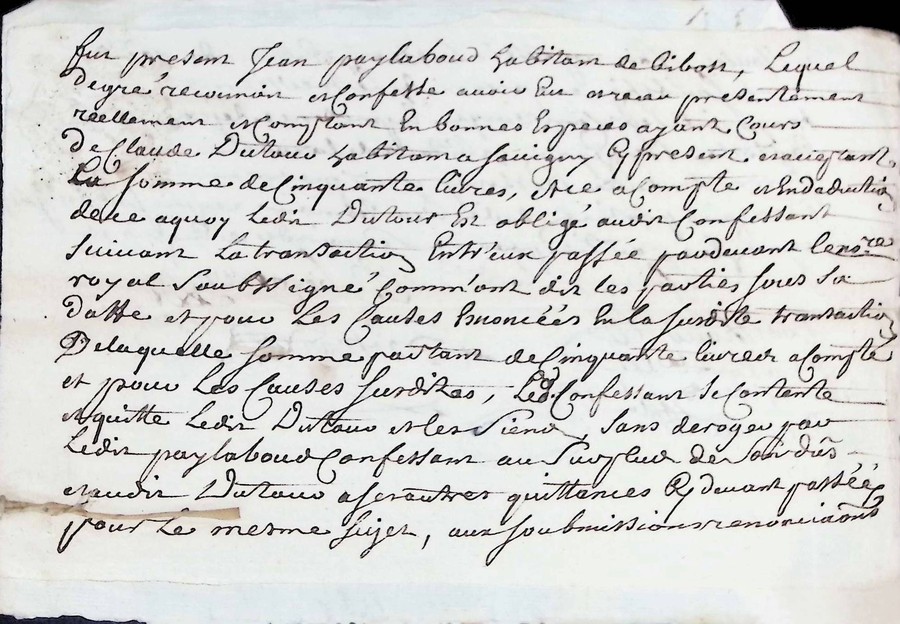 fut present Jean paylaboud habitant de bibost, Lequel
de gré reconnoit et Confesse avoir Eu et receu presentement
reellement et Comptant En bonnes Especes ayant Cours
de Claude Dutour habitant a savigny Cy present et acceptant
La somme de Cinquante livres, et ce a Compte et En deduction
de ce a quoy Ledit Dutour Est obligé audit Confessant
suivant La transaction Entr'eux passée pardevant le no.re
royal soubssigné Comm'ont dit les parties sous sa
datte et pour Les Causes Enoncées En la susdite transaction
De laquelle somme partant de Cinquante livres a Compte
et pour Les Causes susdites, Led. Confessant se Contente
et quitte Ledit Dutour et les siens, sans deroger par
Ledit paylaboud Confessant au surplus de son dû
et audit Dutour a ses autres quittances Cy devant passées
pour Le mesme sujet, aux soubmissions renonciaons